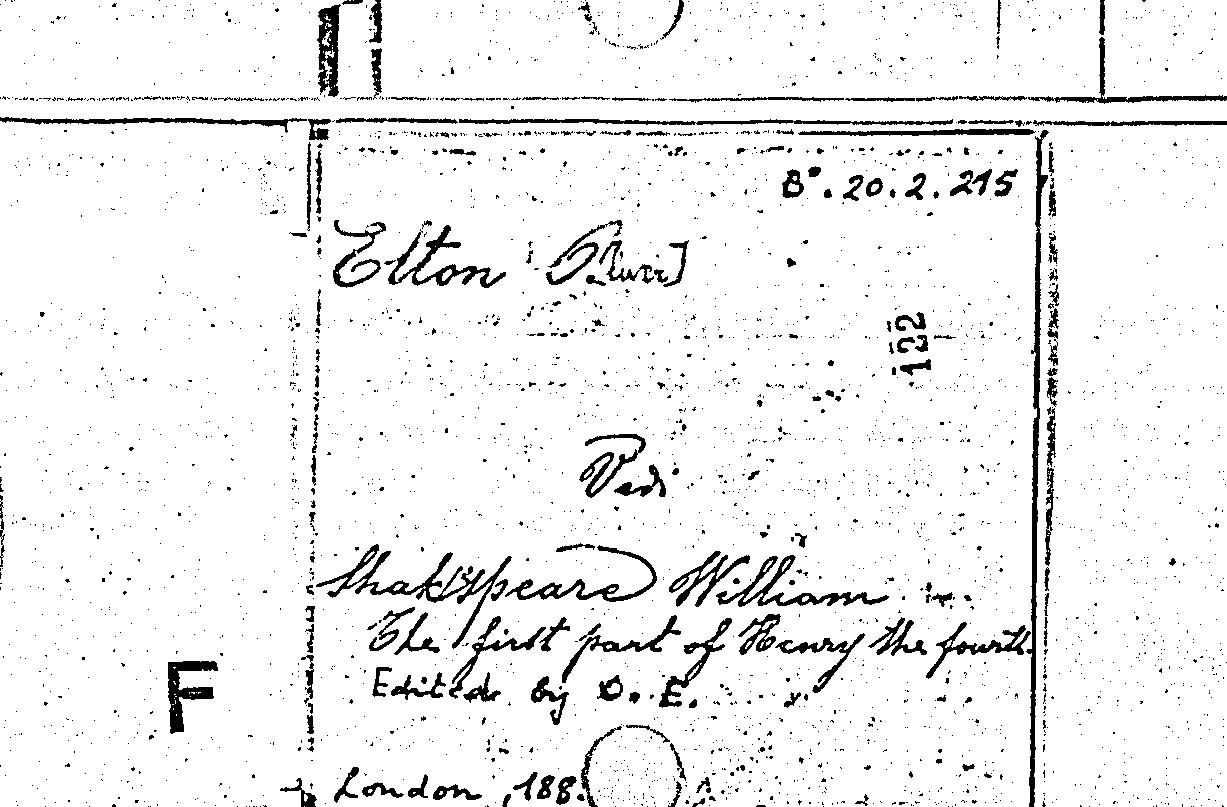 B°.20.2.215
Elton
122
Vedi
Shakspeare William
The first part of Henry the fourth.
Edited by O. E.
F
London, 188.